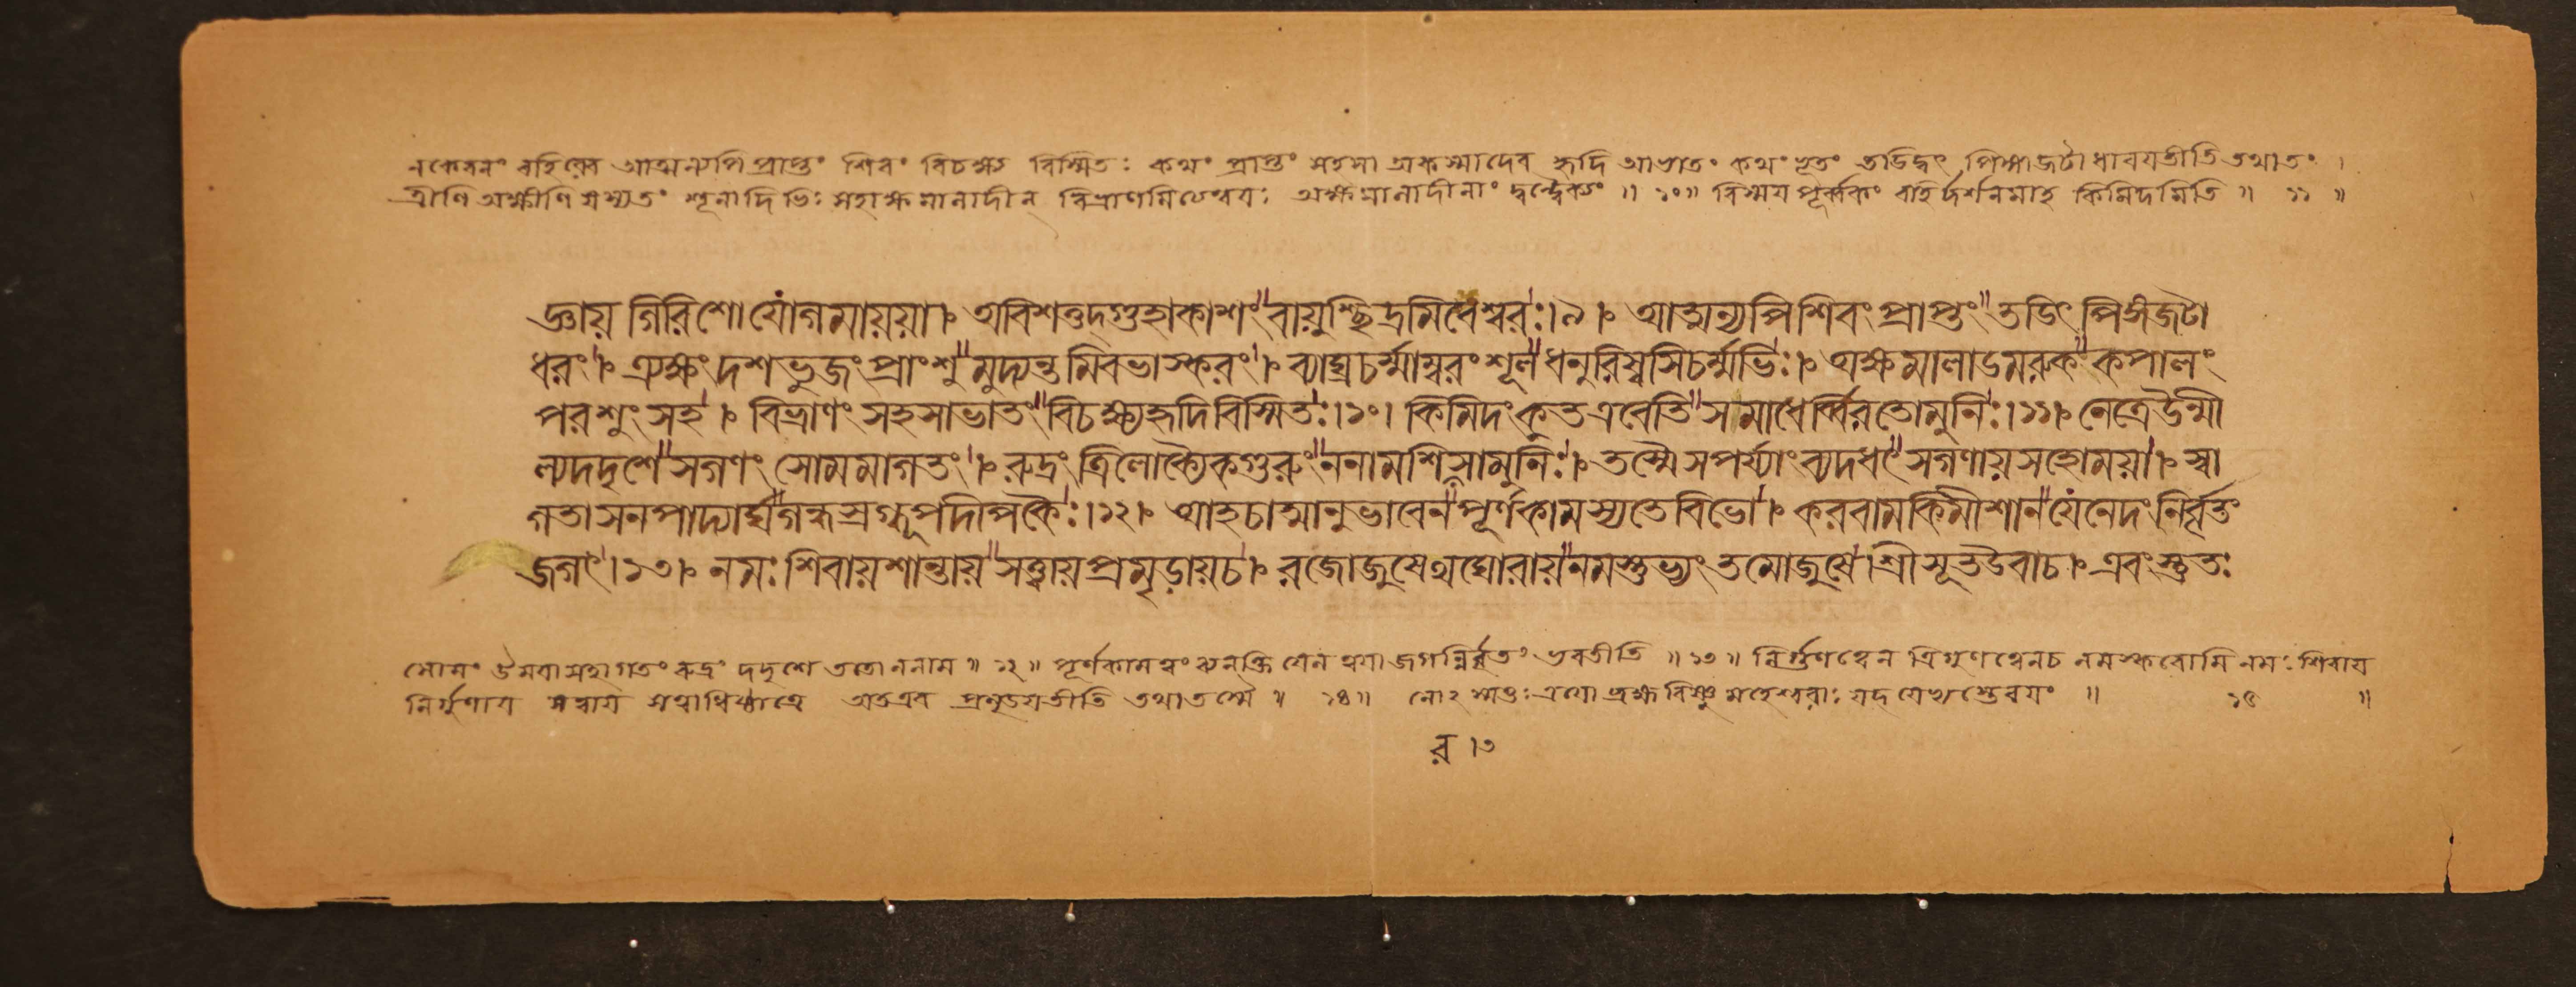 নকেবলং বহিরেব আত্মন্যপি প্রাপ্তং শিবং বিচক্ষ্য বিস্মিতঃ কথং প্রাপ্তং সহসা অকস্মাদেব হৃদি আভাতং কথং ভূতং তডিদ্বৎ পিঙ্গাজটা ধারয়তীতি তথাতং ।
ত্রীণি অক্ষীণি যস্যতং শূলাদিভিঃ সহাক্ষমালাদীন্ বিভ্রাণমিত্যেন্বয়ঃ অক্ষমালাদীনাং দ্বন্দ্বৈক্যং ॥ ১০॥ বিস্ময় পূর্ব্বকং বহির্দর্শনমাহ কিমিদমিতি ॥ ১১ ॥
জ্ঞায় গিরিশো যোগমায়য়া। অবিশত্তদ্গুহাকাশং বায়ুশ্ছিদ্রমিবেশ্বরঃ।৯। আত্মন্যপিশিবংপ্রাপ্তং তডিৎ পিঙ্গজটা
ধরং। ত্র্যক্ষংদশভুজংপ্রাংশু মুদ্যন্তমিবভাস্করং। ব্যাঘ্রচর্ম্মাম্বরংশূল ধনুরিষ্বসিচর্ম্মভিঃ। অক্ষমালাডমরুক কপালং
পরশুং সহ। বিভ্রাণং সহসাভাতং বিচক্ষ্যহৃদিবিস্মিতঃ।১০। কিমিদংকুতএবেতি সমাধের্ব্বিরতোমুনিঃ।১১। নেত্রেউন্মী
ল্যদদৃশে সগণং সোমমাগতং। রুদ্রং ত্রিলোক্যৈকগুরুং ননামশিরসামুনিঃ। তস্মৈসপর্য্যাংব্যদধৎ সগণায়সহোময়া। স্বা
গতাসনপাদ্যার্ঘ্য গন্ধস্রগ্ধূপদীপকৈঃ।১২। আহচাত্মানুভাবেন পূর্ণকামস্যতেবিভো। করবামকিমীশান যেনেদংনির্বৃতং
জগৎ।১৩। নমঃ শিবায়শান্তায় সত্ত্বায়প্রমৃড়ায়চ। রজোজুষেথঘোরায় নমস্তুভ্যংতমোজুষে। শ্রীসূতউবাচ। এবংস্তুতঃ
সোমং উময়াসহাগতং রুদ্রং দদৃশে ততোননাম ॥ ১২ ॥ পূর্ণকামত্বং যেন ত্বয়া জগন্নির্বৃতং ভবতীতি ॥ ১৩ ॥ নির্গুণত্বেন ত্রিগুণত্বেনচ নমস্করোমি নমঃ শিবায়
নির্গুণায় সত্বায় সত্বাধিষ্ঠাত্রে অতএব প্রমৃডয়তীতি তথাতস্মৈ ॥ ১৪॥ ব্রহ্ম বিষ্ণু মহেশ্বরাঃ ॥ ১৫ ॥
র ।৩